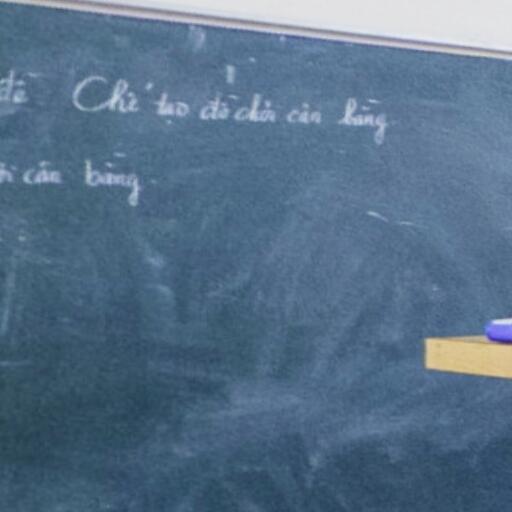 đề Chế tạo đồ chơi cân bằng
ơi cân bằng